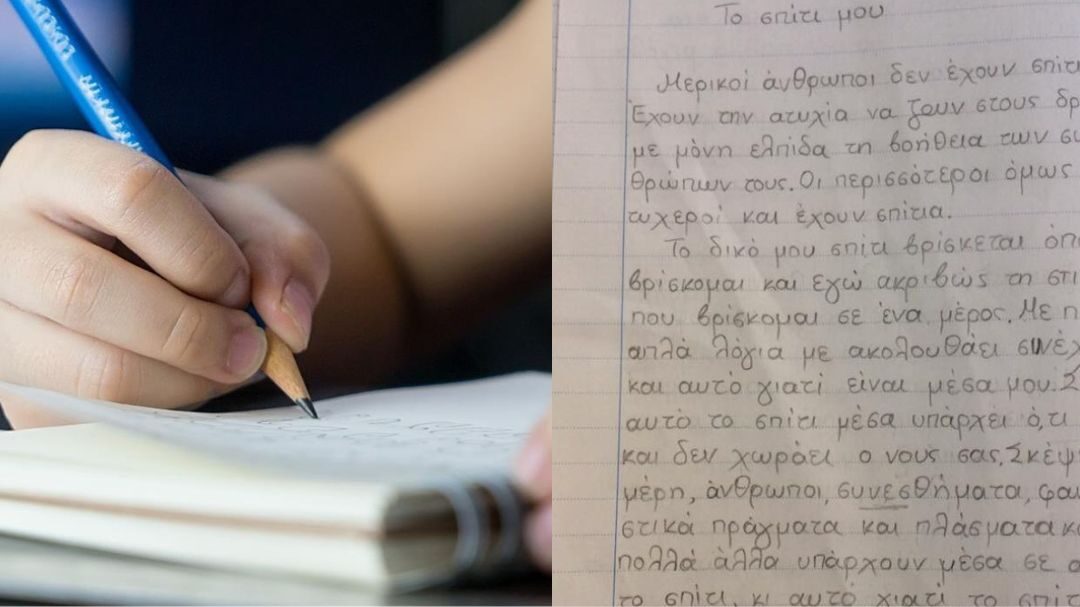 Το σπίτι μου
Μερικοί άνθρωποι δεν έχουν σπίτι
Έχουν την ατυχία να ζουν στους δρ
με μόνη ελπίδα τη βοήθεια των συ
θρώπων τους. Οι περισσότεροι όμως
τυχεροί και έχουν σπίτια.
Το δικό μου σπίτι βρίσκεται όπ
βρίσκομαι και εγώ ακριβώς τη στι
που βρίσκομαι σε ένα μέρος. Με π
απλά λόγια με ακολουθάει συνέχ
και αυτό γιατί είναι μέσα μου. Σ
αυτό το σπίτι μέσα υπάρχει ό,τι
και δεν χωράει ο νους σας. Σκέψ
μέρη, άνθρωποι, συνεσθήματα, φαν
στικά πράγματα και πλάσματα κα
πολλά άλλα υπάρχουν μέσα σε α
το σπίτι. κι αυτό γιατί το σπίτ